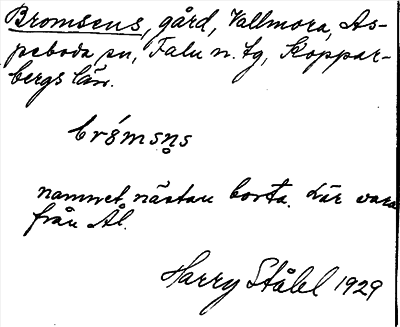 Bromsens, gård, Vallmora, As-
peboda sn, Falu n. tg, Koppar-
bergs län.
brómsn̥s
namnet nästan borta. Lär vara
från Ål.
Harry Ståhl 1929